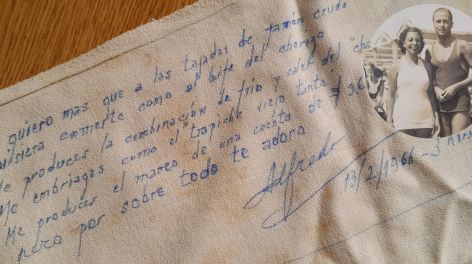 quiero mas que a las tajadas de jamón crudo
quisiera comerte como al bife del chorizo
Me produces la combinación de frio y calor del "cha
Me embriagas como el "trapiche viejo tinto
Me produces el mareo de una cuenta de $
pero por sobre todo te adoro
Alfredo
13/2/1966